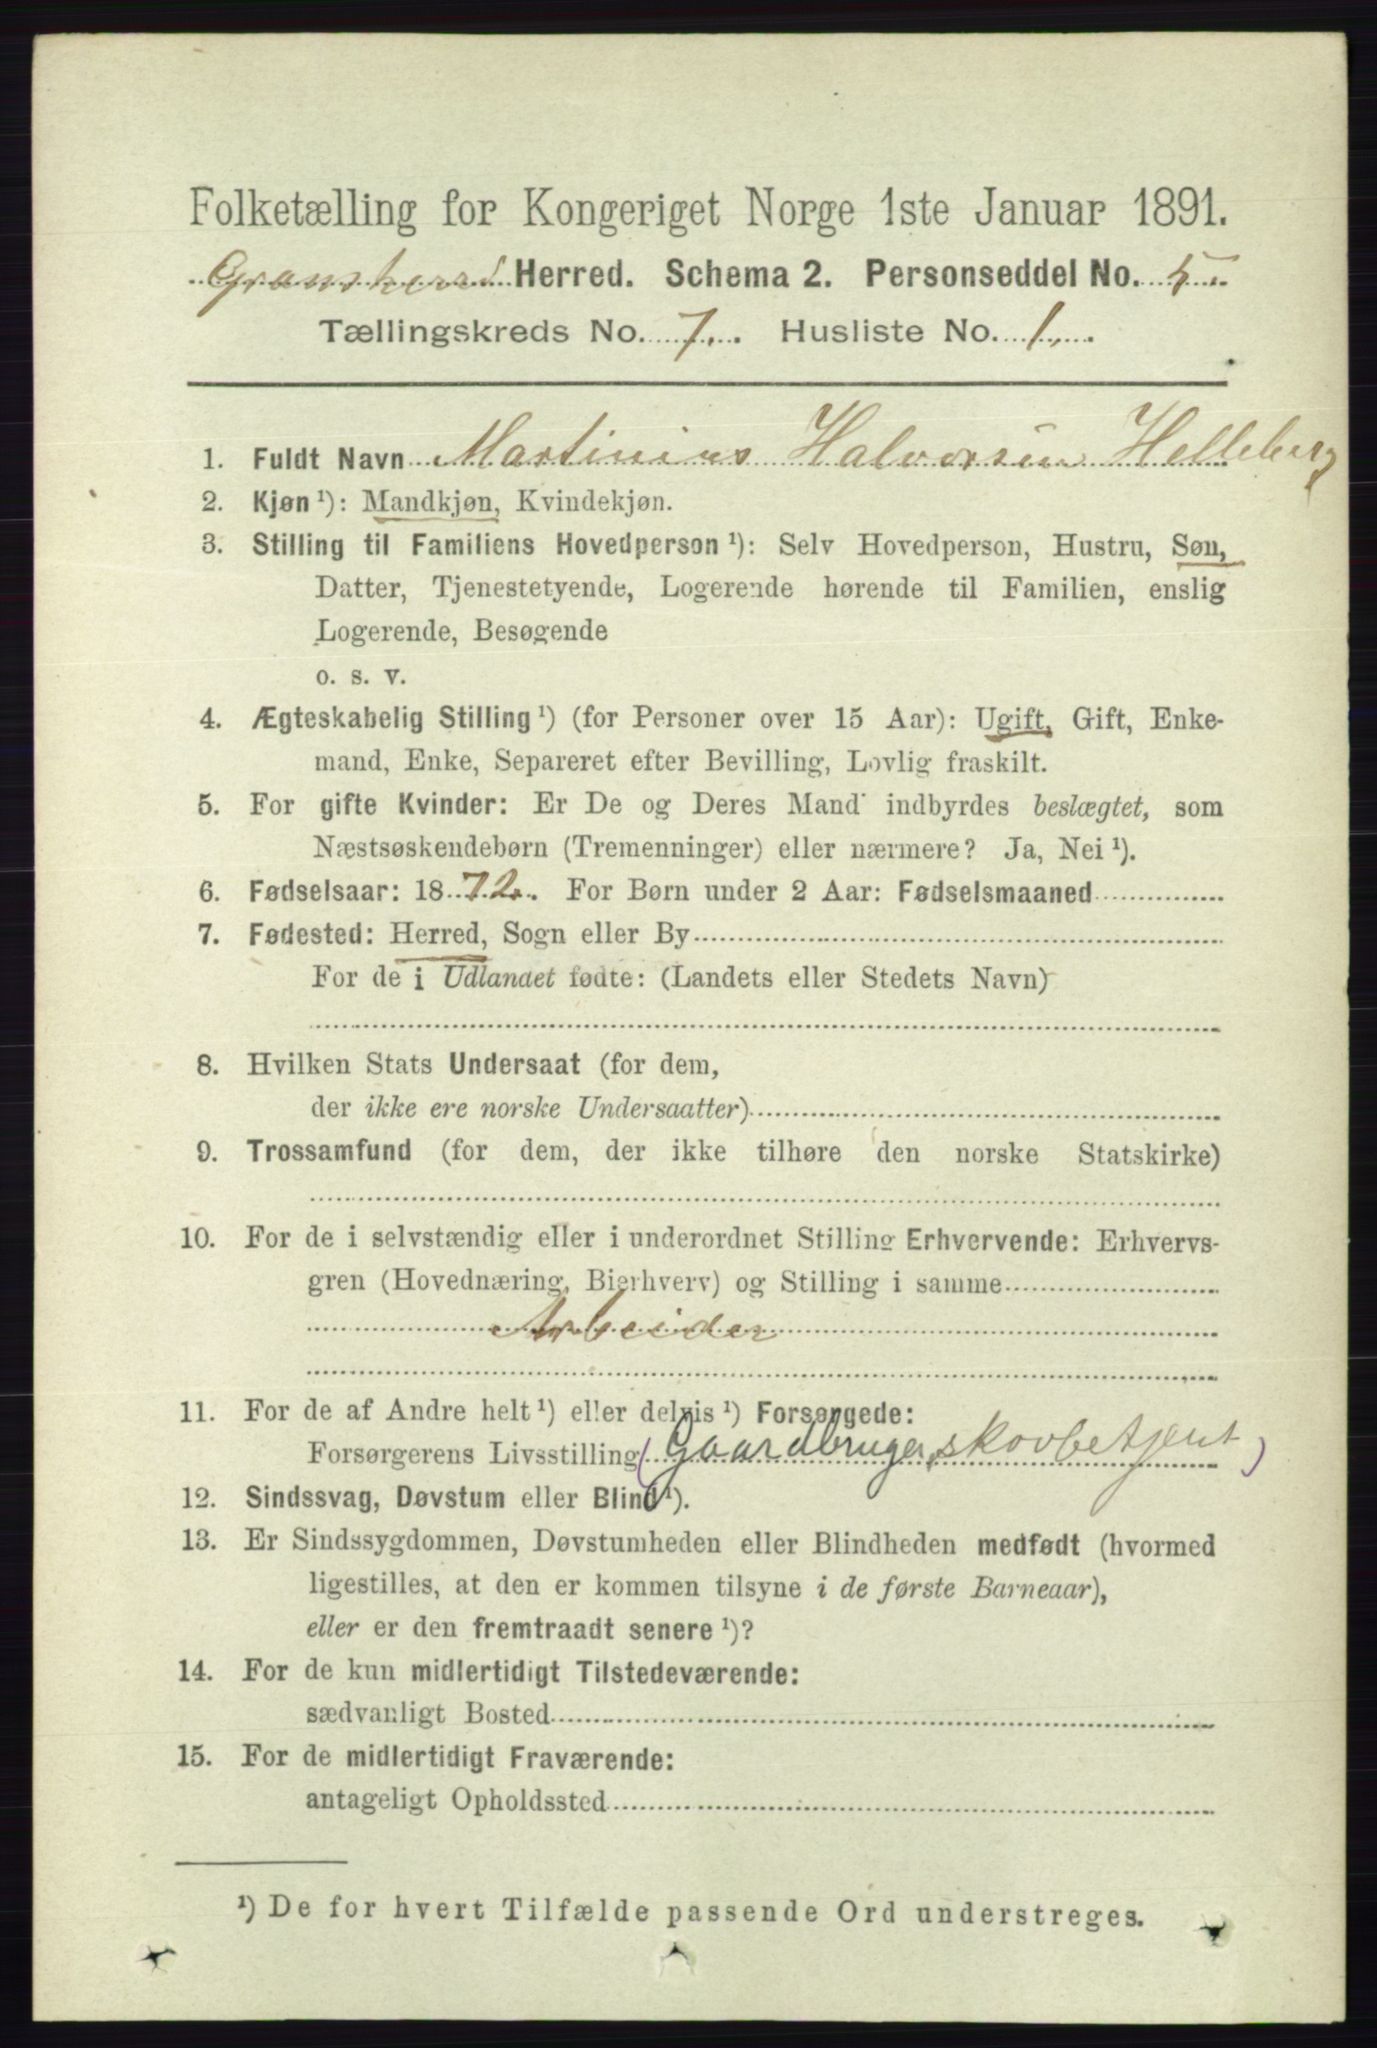 Folketælling for Kongeriget Norge 1ste Januar 1891.
Gransherred Herred. Schema 2. Personseddel No. 5
Tællingskreds No. 7. Husliste No. 1.
1. Fuldt Navn Martinius Halvorsen Helleberg
2. Kjøn ¹): Mandkjøn, Kvindekjøn.
3. Stilling til Familiens Hovedperson ¹): Selv Hovedperson, Hustru, Søn,
Datter, Tjenestetyende, Logerende hørende til Familien, enslig
Logerende, Besøgende
o. s. v.
4. Ægteskabelig Stilling ¹) (for Personer over 15 Aar): Ugift, Gift, Enke-
mand, Enke, Separeret efter Bevilling, Lovlig fraskilt.
5. For gifte Kvinder: Er De og Deres Mand indbyrdes beslægtet, som
Næstsøskendebørn (Tremenninger) eller nærmere? Ja, Nei ¹).
6. Fødselsaar: 1872. For Børn under 2 Aar: Fødselsmaaned
7. Fødested: Herred, Sogn eller By
For de i Udlandet fødte: (Landets eller Stedets Navn)
8. Hvilken Stats Undersaat (for dem,
der ikke ere norske Undersaatter)
9. Trossamfund (for dem, der ikke tilhøre den norske Statskirke)
10. For de i selvstændig eller i underordnet Stilling Erhvervende: Erhvervs-
gren (Hovednæring, Bierhverv) og Stilling i samme
Arbeider
11. For de af Andre helt ¹) eller delvis ¹) Forsørgede:
Forsørgerens Livsstilling (Gaardbruger, skovbetjent)
12. Sindssvag, Døvstum eller Blind ¹).
13. Er Sindssygdommen, Døvstumheden eller Blindheden medfødt (hvormed
ligestilles, at den er kommen tilsyne i de første Barneaar),
eller er den fremtraadt senere ¹)?
14. For de kun midlertidigt Tilstedeværende:
sædvanligt Bosted
15. For de midlertidigt Fraværende:
antageligt Opholdssted
¹) De for hvert Tilfælde passende Ord understreges.